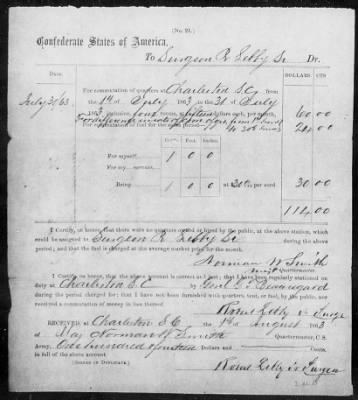 (No. 21.)
Confederate States of America,
To Surgeon R Libby Sr Dr.
DATE. DOLLARS. CTS
July 31/63 For commutation of quarters at Charleston S.C. from
the 1st of July 1863 to the 31 of July
1863 inclusive, four rooms, at fifteen dollars each, per month, 60 00
24 00
For commutation of fuel for the same period
Cords. Feet. Inches.
For myself, 1 0 0
For my servant,
Being 1 0 0 at 30 00 per cord 30 00
114 00
I Certify, on honor, that there were no quarters owned or hired by the public, at the above station, which
could be assigned to Surgeon R. Libby Sr during the above
period; and that the fuel is charged at the average market price for the month.
Norman W Smith
Major Quartermaster.
I Certify, on honor, that the above account is correct and just; that I have been regularly stationed on
duty at Charleston S.C by Genl G T Beauregard
during the period charged for; that I have not been furnished with quarters, tent, or fuel, by the public, nor
received a commutation of money in lieu thereof.
Robt Libby Sr Surgn
RECEIVED at Charleston S.C the 1st August 1863
of Maj Norman W Smith Quartermaster, C.S.
Army, One hundred & fourteen Dollars and Cents,
in full of the above account.
(SIGNED IN DUPLICATE.) Robt Libby Sr Surgeon